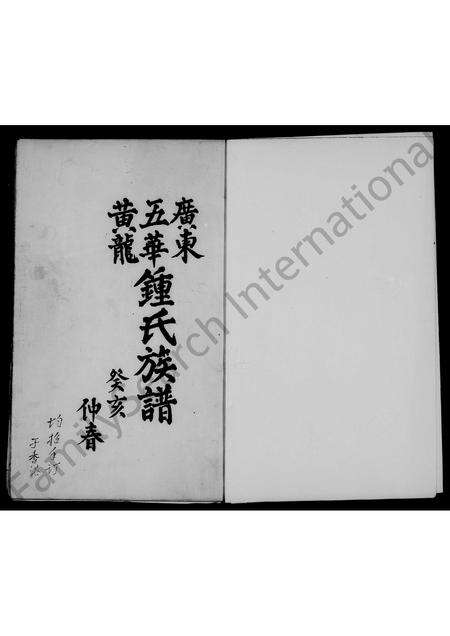 廣東
五華
黄龍
鍾氏族譜
癸亥
仲春
于香港
FamilySearch International